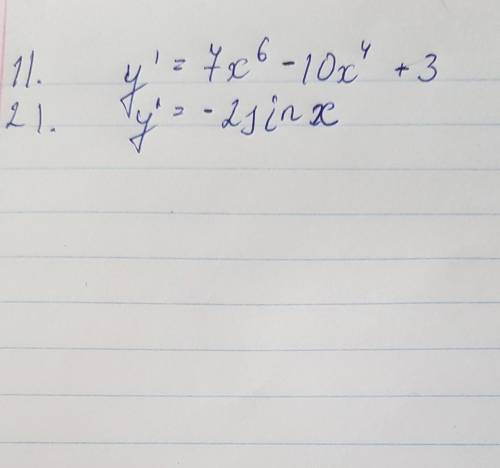 1). y' = 7x⁶ - 10x⁴ + 3
2). y' = - 2sin x